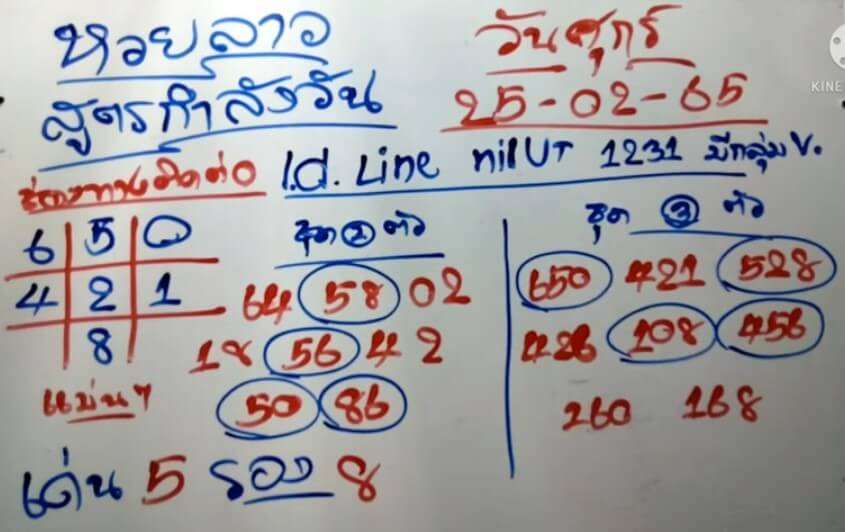 หวยลาว
วันศุกร์
สูตรกำลังวัน
25-02-65
ช่องทางติดต่อ I.d. Line nilUT 1231 มีกลุ่มV.
6 5 0
4 2 1
8
แม่นๆ
ชุด 2 ตัว
64 58 02
18 56 42
50 86
ชุด 3 ตัว
650 421 528
426 108 456
260 168
เด่น 5 รอง 8
KINE